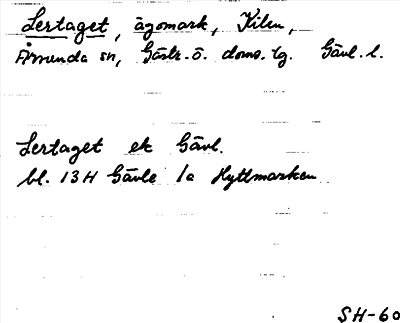 Lertaget, ägomark, Kilen,
Årsunda sn, Gästr. ö. doms. lg. Gävl. l.
Lertaget ek Gävl.
bl. 13H Gävle 1a Hyttmarken
SH-60